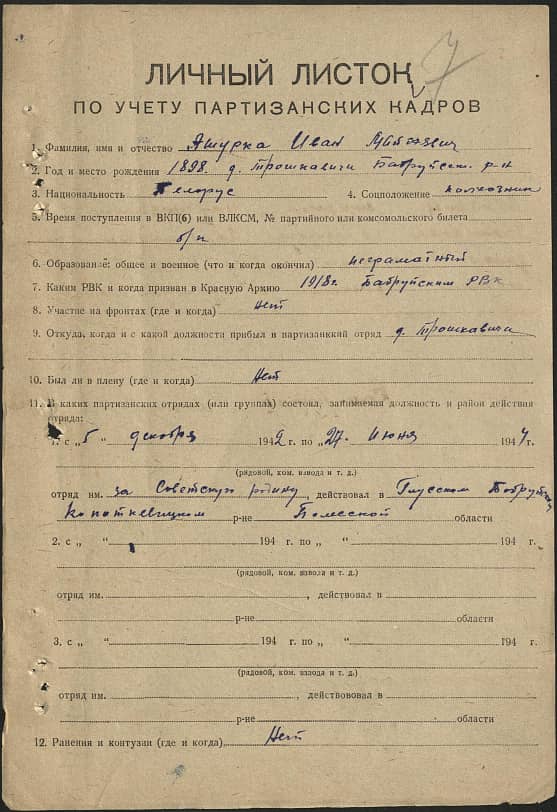 7
ЛИЧНЫЙ ЛИСТОК
ПО УЧЕТУ ПАРТИЗАНСКИХ КАДРОВ
1. Фамилия, имя и отчество Ятурка Иван
2. Год и место рождения 1898. д. Трошкавичи Бабруйск. р-н
3. Национальность Белорус 4. Соцположение калхозник
5. Время поступления в ВКП(б) или ВЛКСМ, № партийного или комсомольского билета
б/п
6. Образование: общее и военное (что и когда окончил) неграматный
7. Каким РВК и когда призван в Красную Армию 1918г. Бабруйским РВК
8. Участие на фронтах (где и когда) Нет
9. Откуда, когда и с какой должности прибыл в партизанкий отряд д. Трошкавичи
10. Был ли в плену (где и когда) Нет
11. В каких партизанских отрядах (или группах) состоял, занимаемая должность и район действия
отряда:
1. с „5 “ декабря 1942 г. по „27. “ Июня 1944 г.
(рядовой, ком. взвода и т. д.)
отряд им. За Советскую родину, действовал в Глусском Бабруйском
Копаткевицком р-не Полесской области
2. с „ “ 194 г. по „ “ 194 г.
(рядовой, ком. взвола и т. д.)
отряд им. , действовал в
р-не области
3. с „ “ 194 г. по „ “ 194 г.
(рядовой, ком. взвода и т. д.)
отряд им. , действововал в
р-не области
12. Ранения и контузии (где и когда) Нет